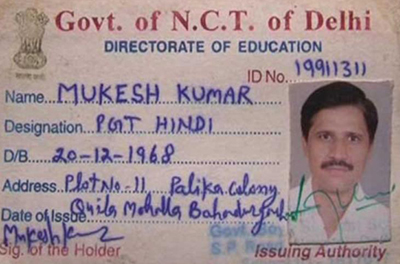 Govt. of N.C.T. of Delhi
DIRECTORATE OF EDUCATION
ID No. 19911311
Name MUKESH KUMAR
Designation PGT HINDI
D/B 20-12-1968
Address Plot No-11, Palika Colony
Date of Issue Quila Mohalla Bahadurgarh
Mukesh Kumar
Sig. of the Holder
Issuing Authority